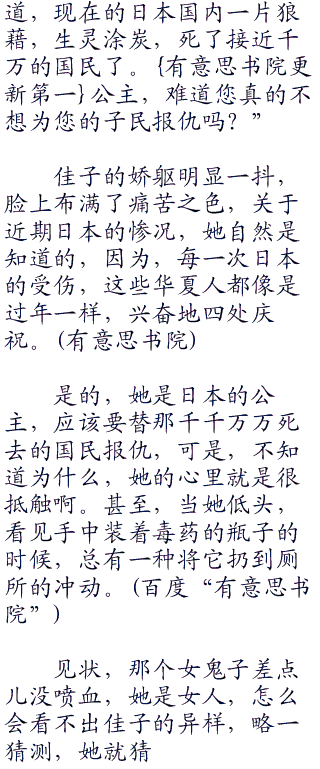 道，现在的日本国内一片狼
藉，生灵涂炭，死了接近千
万的国民了。{有意思书院更
新第一}公主，难道您真的不
想为您的子民报仇吗？”
佳子的娇躯明显一抖，
脸上布满了痛苦之色，关于
近期日本的惨况，她自然是
知道的，因为，每一次日本
的受伤，这些华夏人都像是
过年一样，兴奋地四处庆
祝。(有意思书院)
是的，她是日本的公
主，应该要替那千千万万死
去的国民报仇，可是，不知
道为什么，她的心里就是很
抵触啊。甚至，当她低头，
看见手中装着毒药的瓶子的
时候，总有一种将它扔到厕
所的冲动。(百度“有意思书
院”)
见状，那个女鬼子差点
儿没喷血，她是女人，怎么
会看不出佳子的异样，略一
猜测，她就猜